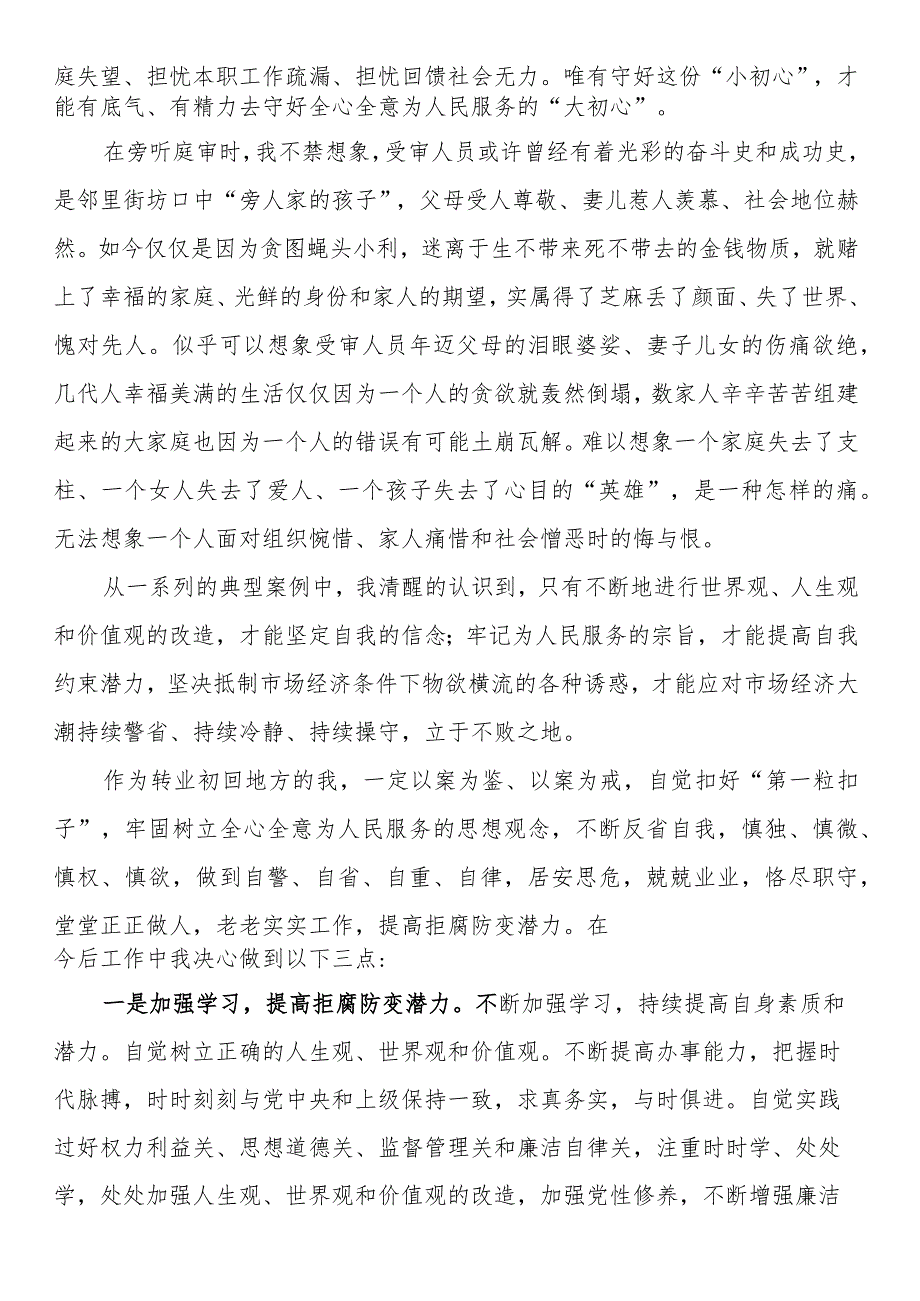 庭失望、担忧本职工作疏漏、担忧回馈社会无力。唯有守好这份“小初心”，才
能有底气、有精力去守好全心全意为人民服务的“大初心”。
在旁听庭审时，我不禁想象，受审人员或许曾经有着光彩的奋斗史和成功史，
是邻里街坊口中“旁人家的孩子”，父母受人尊敬、妻儿惹人羡慕、社会地位赫
然。如今仅仅是因为贪图蝇头小利，迷离于生不带来死不带去的金钱物质，就赌
上了幸福的家庭、光鲜的身份和家人的期望，实属得了芝麻丢了颜面、失了世界、
愧对先人。似乎可以想象受审人员年迈父母的泪眼婆娑、妻子儿女的伤痛欲绝，
几代人幸福美满的生活仅仅因为一个人的贪欲就轰然倒塌，数家人辛辛苦苦组建
起来的大家庭也因为一个人的错误有可能土崩瓦解。难以想象一个家庭失去了支
柱、一个女人失去了爱人、一个孩子失去了心目的“英雄”，是一种怎样的痛。
无法想象一个人面对组织惋惜、家人痛惜和社会憎恶时的悔与恨。
从一系列的典型案例中，我清醒的认识到，只有不断地进行世界观、人生观
和价值观的改造，才能坚定自我的信念；牢记为人民服务的宗旨，才能提高自我
约束潜力，坚决抵制市场经济条件下物欲横流的各种诱惑，才能应对市场经济大
潮持续警省、持续冷静、持续操守，立于不败之地。
作为转业初回地方的我，一定以案为鉴、以案为戒，自觉扣好“第一粒扣
子”，牢固树立全心全意为人民服务的思想观念，不断反省自我，慎独、慎微、
慎权、慎欲，做到自警、自省、自重、自律，居安思危，兢兢业业，恪尽职守，
堂堂正正做人，老老实实工作，提高拒腐防变潜力。在
今后工作中我决心做到以下三点:
一是加强学习，提高拒腐防变潜力。不断加强学习，持续提高自身素质和
潜力。自觉树立正确的人生观、世界观和价值观。不断提高办事能力，把握时
代脉搏，时时刻刻与党中央和上级保持一致，求真务实，与时俱进。自觉实践
过好权力利益关、思想道德关、监督管理关和廉洁自律关，注重时时学、处处
学，处处加强人生观、世界观和价值观的改造，加强党性修养，不断增强廉洁